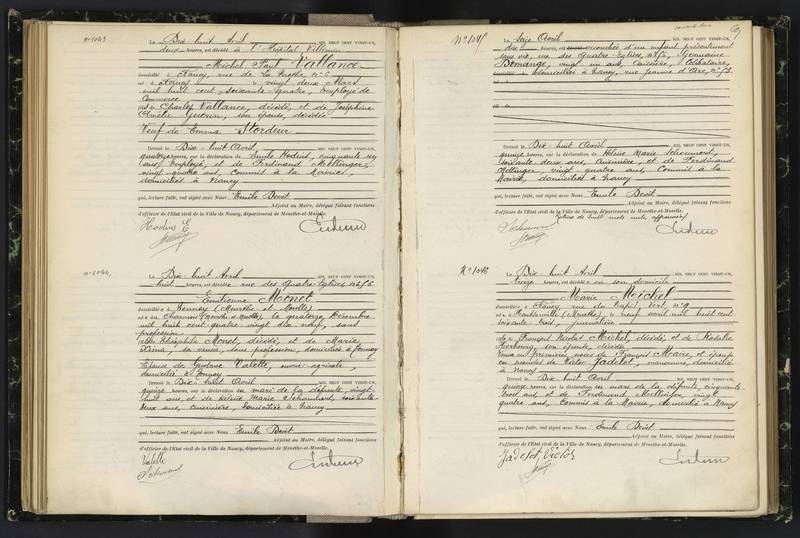 N° 1043
Le Dix huit Avril MIL NEUF CENT VINGT-UN,
deux heures, est décédé à l'Hôpital Villemin
Michel Paul Vallance
domicilié à Nancy, rue de La
né à Nancy le vingt deux Mars
mil huit cent soixante quatre, Employé de
Commerce
fils de Charles Vallance, décédé, et de Joséphine
Amélie Guérin, son épouse, décédée
Veuf de Emma Stordeur
Devant le Dix huit Avril
quatorze heures, sur la déclaration de Emile Hodins, cinquante
ans, Employé, et de Ferdinand Mettinger,
vingt quatre ans, Commis à la Mairie,
domiciliés à Nancy
qui, lecture faite, ont signé avec Nous Emile Bevit
Adjoint au Maire, délégué faisant fonctions
d'officier de l'Etat civil de la Ville de Nancy, département de Meurthe-et-Moselle.
Hodins E
N° 1044
Le Dix huit Avril MIL NEUF CENT VINGT-UN,
huit heures, est décédée rue des Quatre Eglises
Emilienne Monet
domiciliée à Jonnay (Meurthe et Moselle)
née à Charmois (Meurthe et Moselle), le quatorze Décembre
mil huit cent quatre vingt dix neuf, sans
profession
fille Théophile Monet, décédé, et de Marie
sa veuve, sans profession, domiciliée à Jonnay
Epouse de Gustave Valette, ouvrier agricole,
domicilié à Jonnay
Devant le Dix huit Avril MIL NEUF CENT VINGT-UN,
quinze heures, sur la déclaration du mari de la défunte, vingt
huit ans, et de Hélène Marie Schaumont, soixante
deux ans, Cuisinière, domiciliée à Nancy
qui, lecture faite, ont signé avec Nous Emile Bevit
Adjoint au Maire, délégué faisant fonctions
d'officier de l'Etat civil de la Ville de Nancy, département de Meurthe-et-Moselle.
Valette
N° 1045
Le Seize Avril MIL NEUF CENT VINGT-UN,
dix heures, est accouchée d'un enfant présentement
sans vie, rue des Quatre Eglises, Germaine
Bemange, vingt un ans, Caissière, Célibataire,
domiciliée à Nancy, rue Jeanne d'Arc
Devant le Dix huit Avril MIL NEUF CENT VINGT-UN,
quinze heures, sur la déclaration de Hélène Marie Schaumont,
soixante deux ans, Cuisinière, et de Ferdinand
Mettinger, vingt quatre ans, Commis à la
Mairie, domiciliés à Nancy
qui, lecture faite, ont signé avec Nous Emile Bevit
Adjoint au Maire, délégué faisant fonctions
d'officier de l'Etat civil de la Ville de Nancy, département de Meurthe-et-Moselle.
de huit mots nuls, approuvée
N° 1046
Le Dix huit Avril MIL NEUF CENT VINGT-UN,
treize heures, est décédée en son domicile
Marie Michel
domiciliée à Nancy, rue du Tapis Vert, n° 9
née à (Meurthe) le neuf Avril mil huit cent
soixante trois, journalière
fille de François Nicolas Michel, décédé, et de Rosalie
son épouse, décédée
Veuve en premières noces de François Maire, et épouse
en secondes de Victor Jadelot, manœuvre, domicilié
à Nancy
Devant le Dix huit Avril MIL NEUF CENT VINGT-UN,
quinze heures, sur la déclaration du mari de la défunte, cinquante
trois ans, et de Ferdinand Mettinger, vingt
quatre ans, Commis à la Mairie, domiciliés à Nancy
qui, lecture faite, ont signé avec Nous Emile Bevit
Adjoint au Maire, délégué faisant fonctions
d'officier de l'Etat civil de la Ville de Nancy, département de Meurthe-et-Moselle.
Jadelot Victor